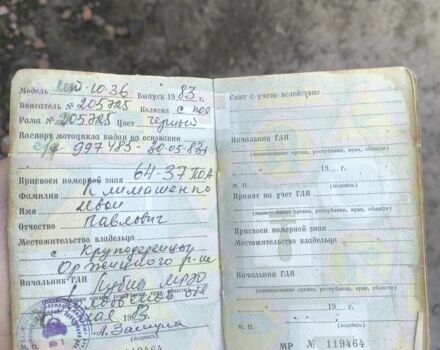 Модель МТ 10-36 Выпуск 1983 г.
Двигатель № 205725 Коляска с
Рама № 205725 Цвет черный
Паспорт мотоцикла выдан на основании
997485 - 30.05.83
Присвоен номерной знак 64-37 ПОА
Фамилия Климашенко
Имя
Отчество Павлович
Местожительство владельца
с Круподеренцы
Оржицкого р-на
Начальник ГАИ Лубны МРЭО
обл
1983
М. П. (подпись)
МР № 119464
Снят с учета вследствие
19 г.
Начальник ГАИ
(наименование органа, республики, края, области)
М. П. (подпись)
Принят на учет ГАИ
(наименование органа, республики, края, области)
Присвоен номерной знак
Местожительство владельца
Начальник ГАИ
(наименование органа, республики, края, области)
19 г.
М. П. (подпись)
МР № 119464